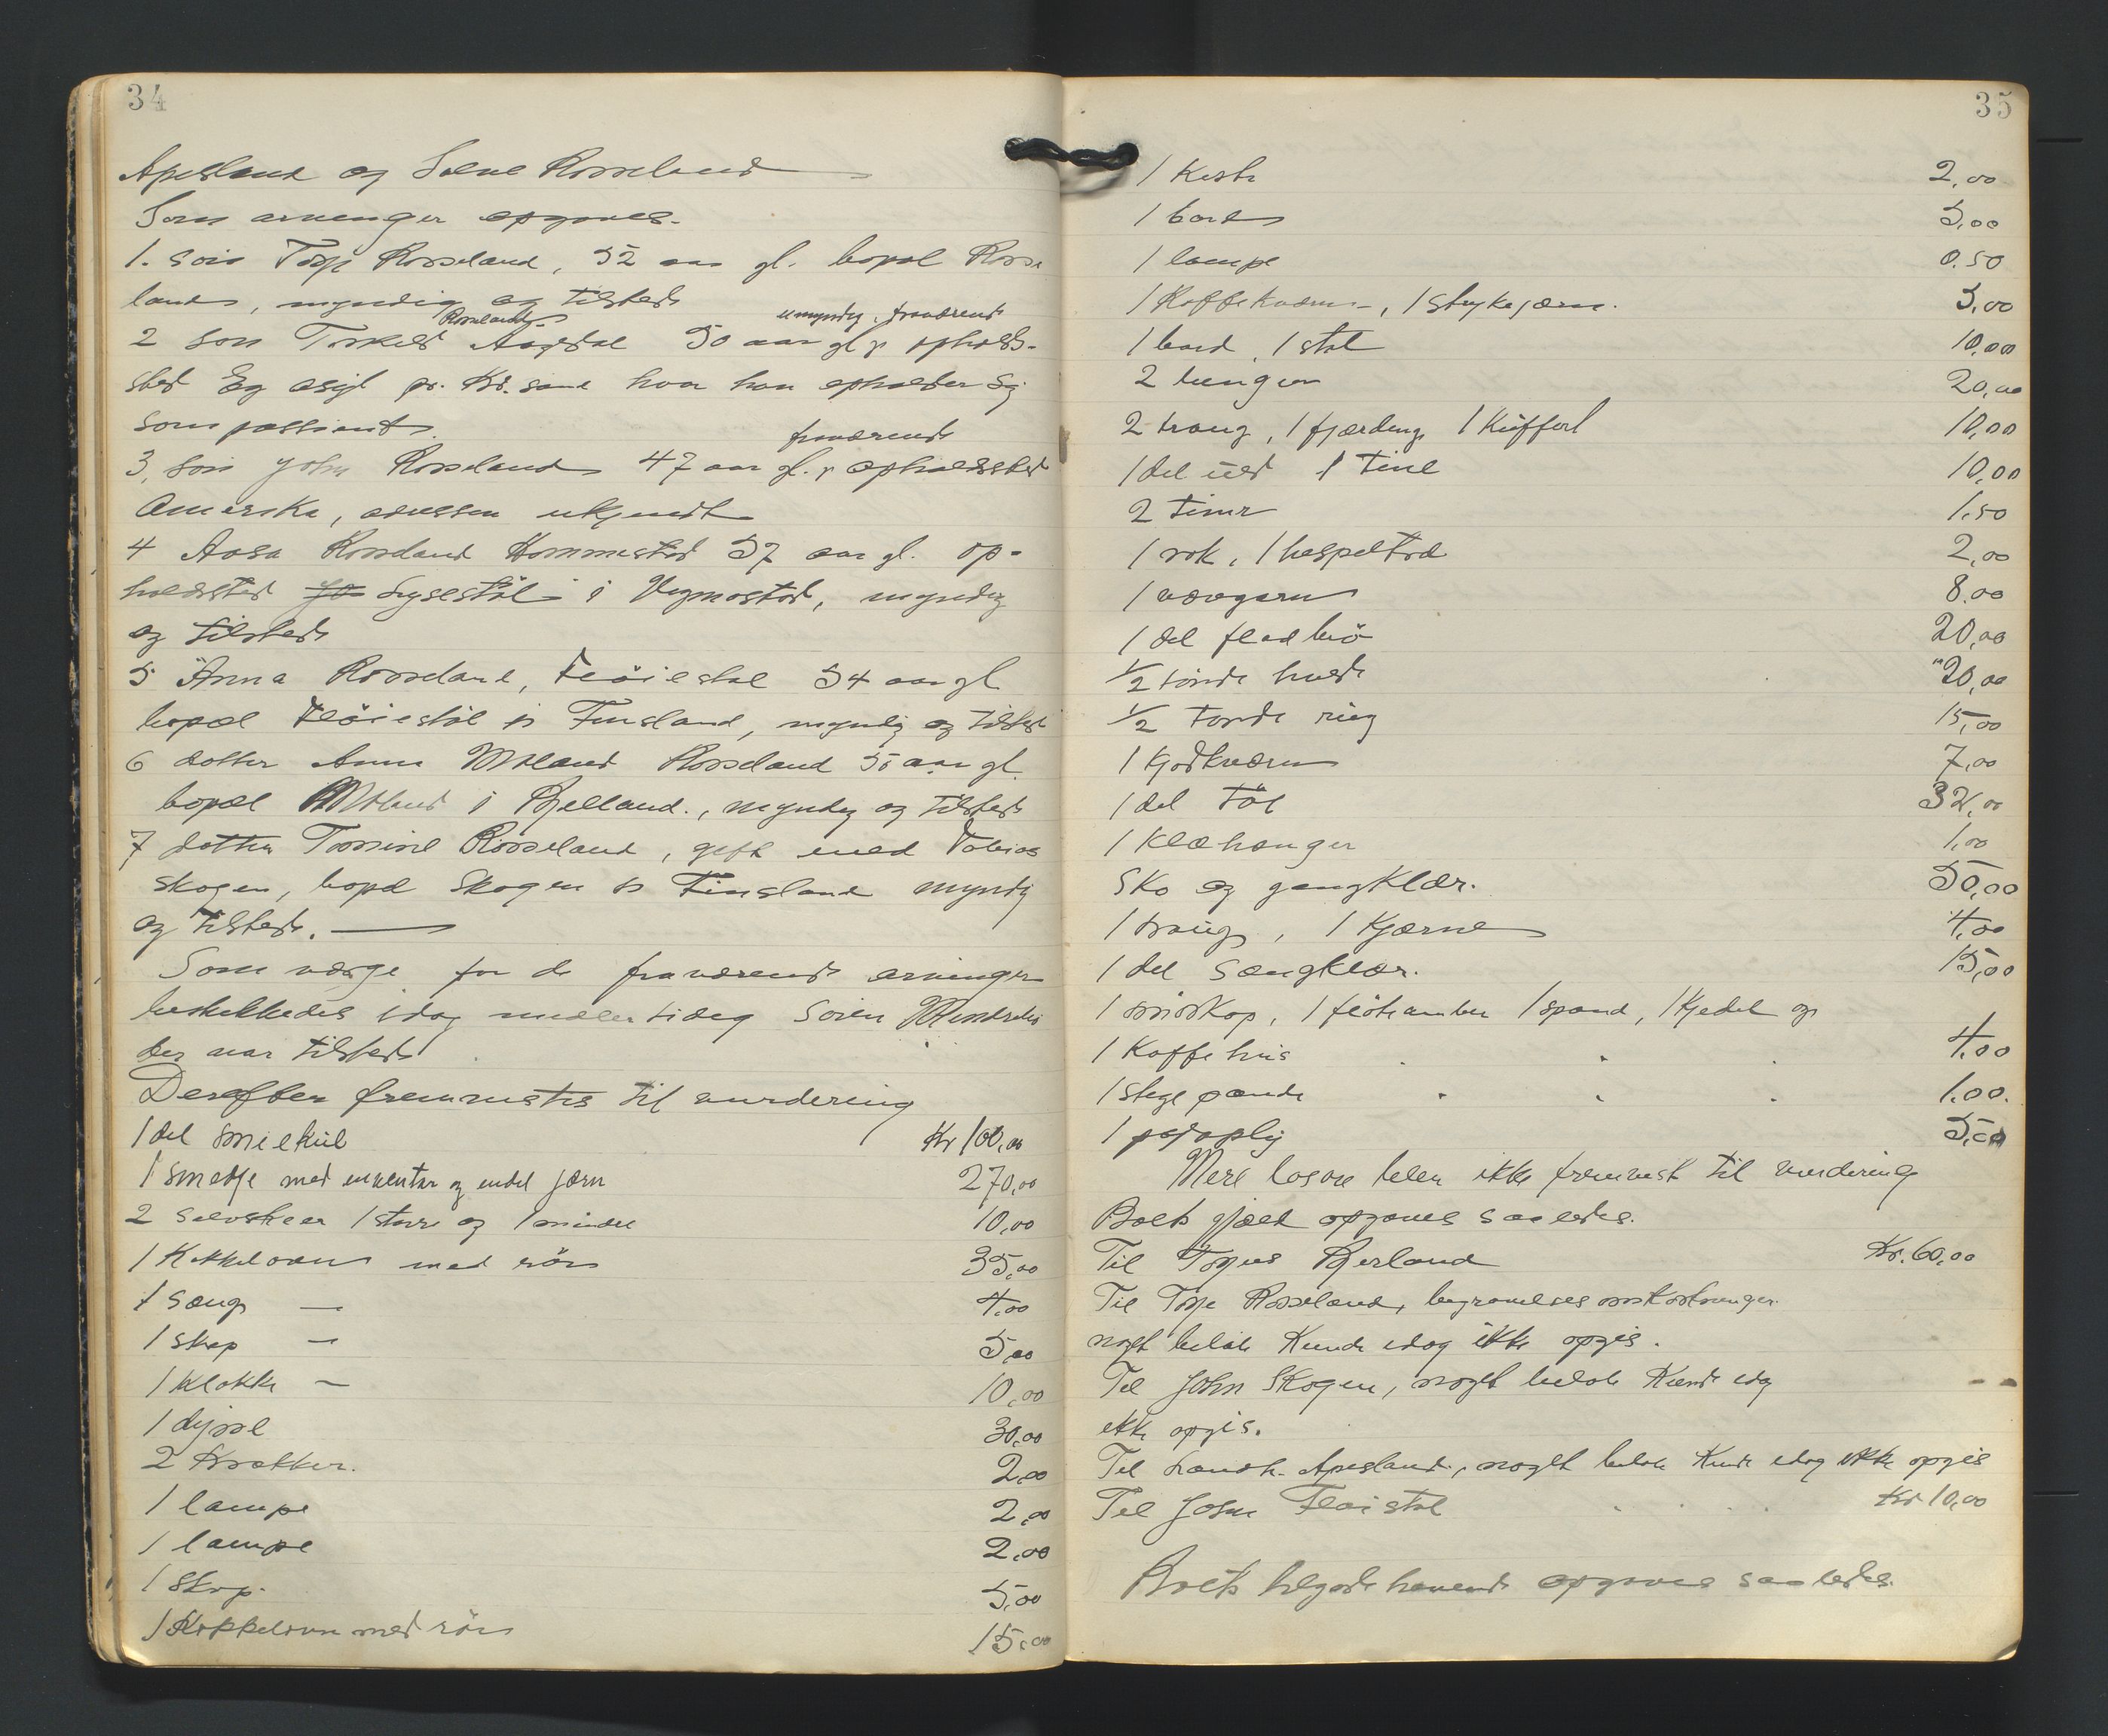 34
Apesland og Salve Rosseland
Som arvinger opgaves.
1. søn Torje Rosseland, 52 aar gl. bopæl Rosse
land, myndig og tilstede
Rosseland umyndig, fraværende
2 søn Torkeld Aagedal 50 aar gl opholds-
sted Eg asyl pr. Kr.sand hvor han opholder sig
som passient.
fraværende
3, søn John Rosseland 47 aar gl. opholdssted
Amerika, adressen ukjendt
4 Aasa Rosseland Hommestad 57 aar gl. op-
holdssted Lysestöl i Vegmostad, myndig
og tilstede
5 Anna Rosseland, Flöiestøl 54 aar gl
bopæl Flöiestöl i Finsland, myndig og tilstede
6 datter Anna Moland Rosseland 50 aar gl.
bopæl Moland i Bjelland., myndig og tilstede
7 datter Tomine Rosseland, gift med Tobias
Skogen, bopæl Skogen i Finsland myndig
og tilstede.
Som værge for de fraværende arvinger
beskikkedes idag midlertidig Sören
der var tilstede
Derefter fremvistes til vurdering
1 del smiekul Kr 100,00
1 smedje med inventar og endel jærn 270,00
2 sølvskeer 1 større og 1 mindre 10,00
1 Kakkelovn med rör 35,00
1 sæng — 4,00
1 skap — 5,00
1 klokke — 10,00
1 30,00
2 Krakker. 2,00
1 lampe 2,00
1 lampe 2,00
1 skap. 5,00
1 Kakkelovn med rör 15,00
35
1 Kiste 2,00
1 bord 5,00
1 lampe 0.50
1 Kaffekværn, 1 strykejærn. 5,00
1 bord, 1 stol 10,00
2 tenger 20,00
2 traug, 1 fjærding 1 Kuffert 10,00
1 del uld 1 tine 10,00
2 tiner 1,50
1 rok, 1 hespeltræ 2,00
1 vævgarn 8.00
1 del fladbrö 20,00
1/2 tönde hvede 20,00
1/2 tønde rug 15,00
1 Kjødkværn 7,00
1 del töi 32,00
1 Klæhenger 1,00
Sko og gangklær. 50,00
1 traug, 1 Kjærne 4,00
1 del sængklær. 15,00
1 smörkop, 1 flöteamber 1 spand, 1 Kjedel og
1 Kaffehus 4,00
1 stegepande 1.00.
1 5,00
Mere løsøre blev ikke fremvist til vurdering
Boets gjæld opgaves saaledes.
Til Torjus Bjerland Kr. 60,00
Til Torje Rosseland, begravelsesomkostninger
noget beløb Kunde idag ikke opgis.
Til John Skogen, noget beløb Kunde idag
ikke opgis.
Til Apesland, noget beløb Kunde idag ikke opgis
Til John Fløistøl Kr 10,00
Boets tilgodehavende opgaves saaledes.